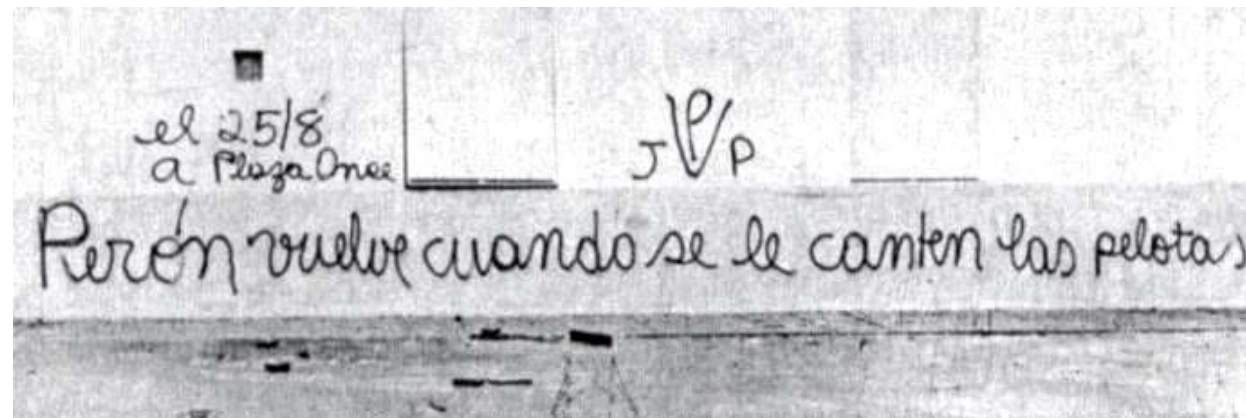 el 25/8
a Plaza Once
J P P
Perón vuelve cuando se le canten las pelotas